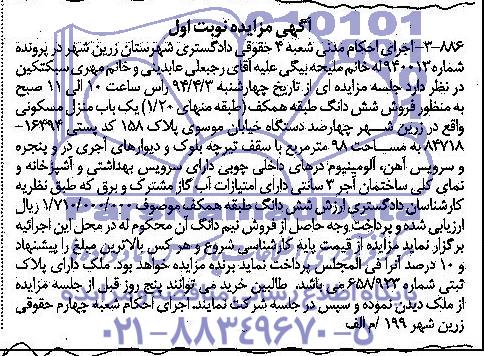 آگهی مزایده نوبت اول
۳-۸۸۶-اجرای احکام مدنی شعبه ۴ حقوقی دادگستری شهرستان زرین شهر در پرونده
شماره ۹۴۰۰۱۳ له خانم ملیحه بیگی علیه آقای رجبعلی عابدینی و خانم مهری سبکتکین
در نظر دارد جلسه مزایده ای از تاریخ چهارشنبه ۹۴/۴/۳ راس ساعت ۱۰ الی ۱۱ صبح
به منظور فروش شش دانگ طبقه همکف (طبقه منهای ۱/۲۰) یک باب منزل مسکونی
واقع در زرین شهر چهارصد دستگاه خیابان موسوی پلاک ۱۵۸ کد پستی ۱۶۳۹۴-
۸۴۷۱۸ به مساحت ۹۸ مترمربع با سقف تیرچه بلوک و دیوارهای آجری در و پنجره
و سرویس آهن، آلومینیوم درهای داخلی چوبی دارای سرویس بهداشتی و آشپزخانه و
نمای کلی ساختمان آجر ۳ سانتی دارای امتیازات آب گاز مشترک و برق که طبق نظریه
کارشناسان دادگستری ارزش شش دانگ طبقه همکف موصوف ۱/۷۱۰/۰۰۰/۰۰۰ ریال
ارزیابی شده و پرداخت وجه حاصل از فروش نیم دانگ آن محکوم له در محل این اجرائیه
برگزار نماید مزایده از قیمت پایه کارشناسی شروع و هر کس بالاترین مبلغ را پیشنهاد
و ۱۰ درصد آنرا فی المجلس پرداخت نماید برنده مزایده خواهد بود. ملک دارای پلاک
ثبتی شماره ۶۵۸/۹۲۳ می باشد. طالبین خرید می توانند پنج روز قبل از جلسه مزایده
از ملک دیدن نموده و سپس در جلسه شرکت نمایند. اجرای احکام شعبه چهارم حقوقی
زرین شهر ۱۹۹ /م الف
۰۲۱-۸۸۳۴۹۶۷۰-۵